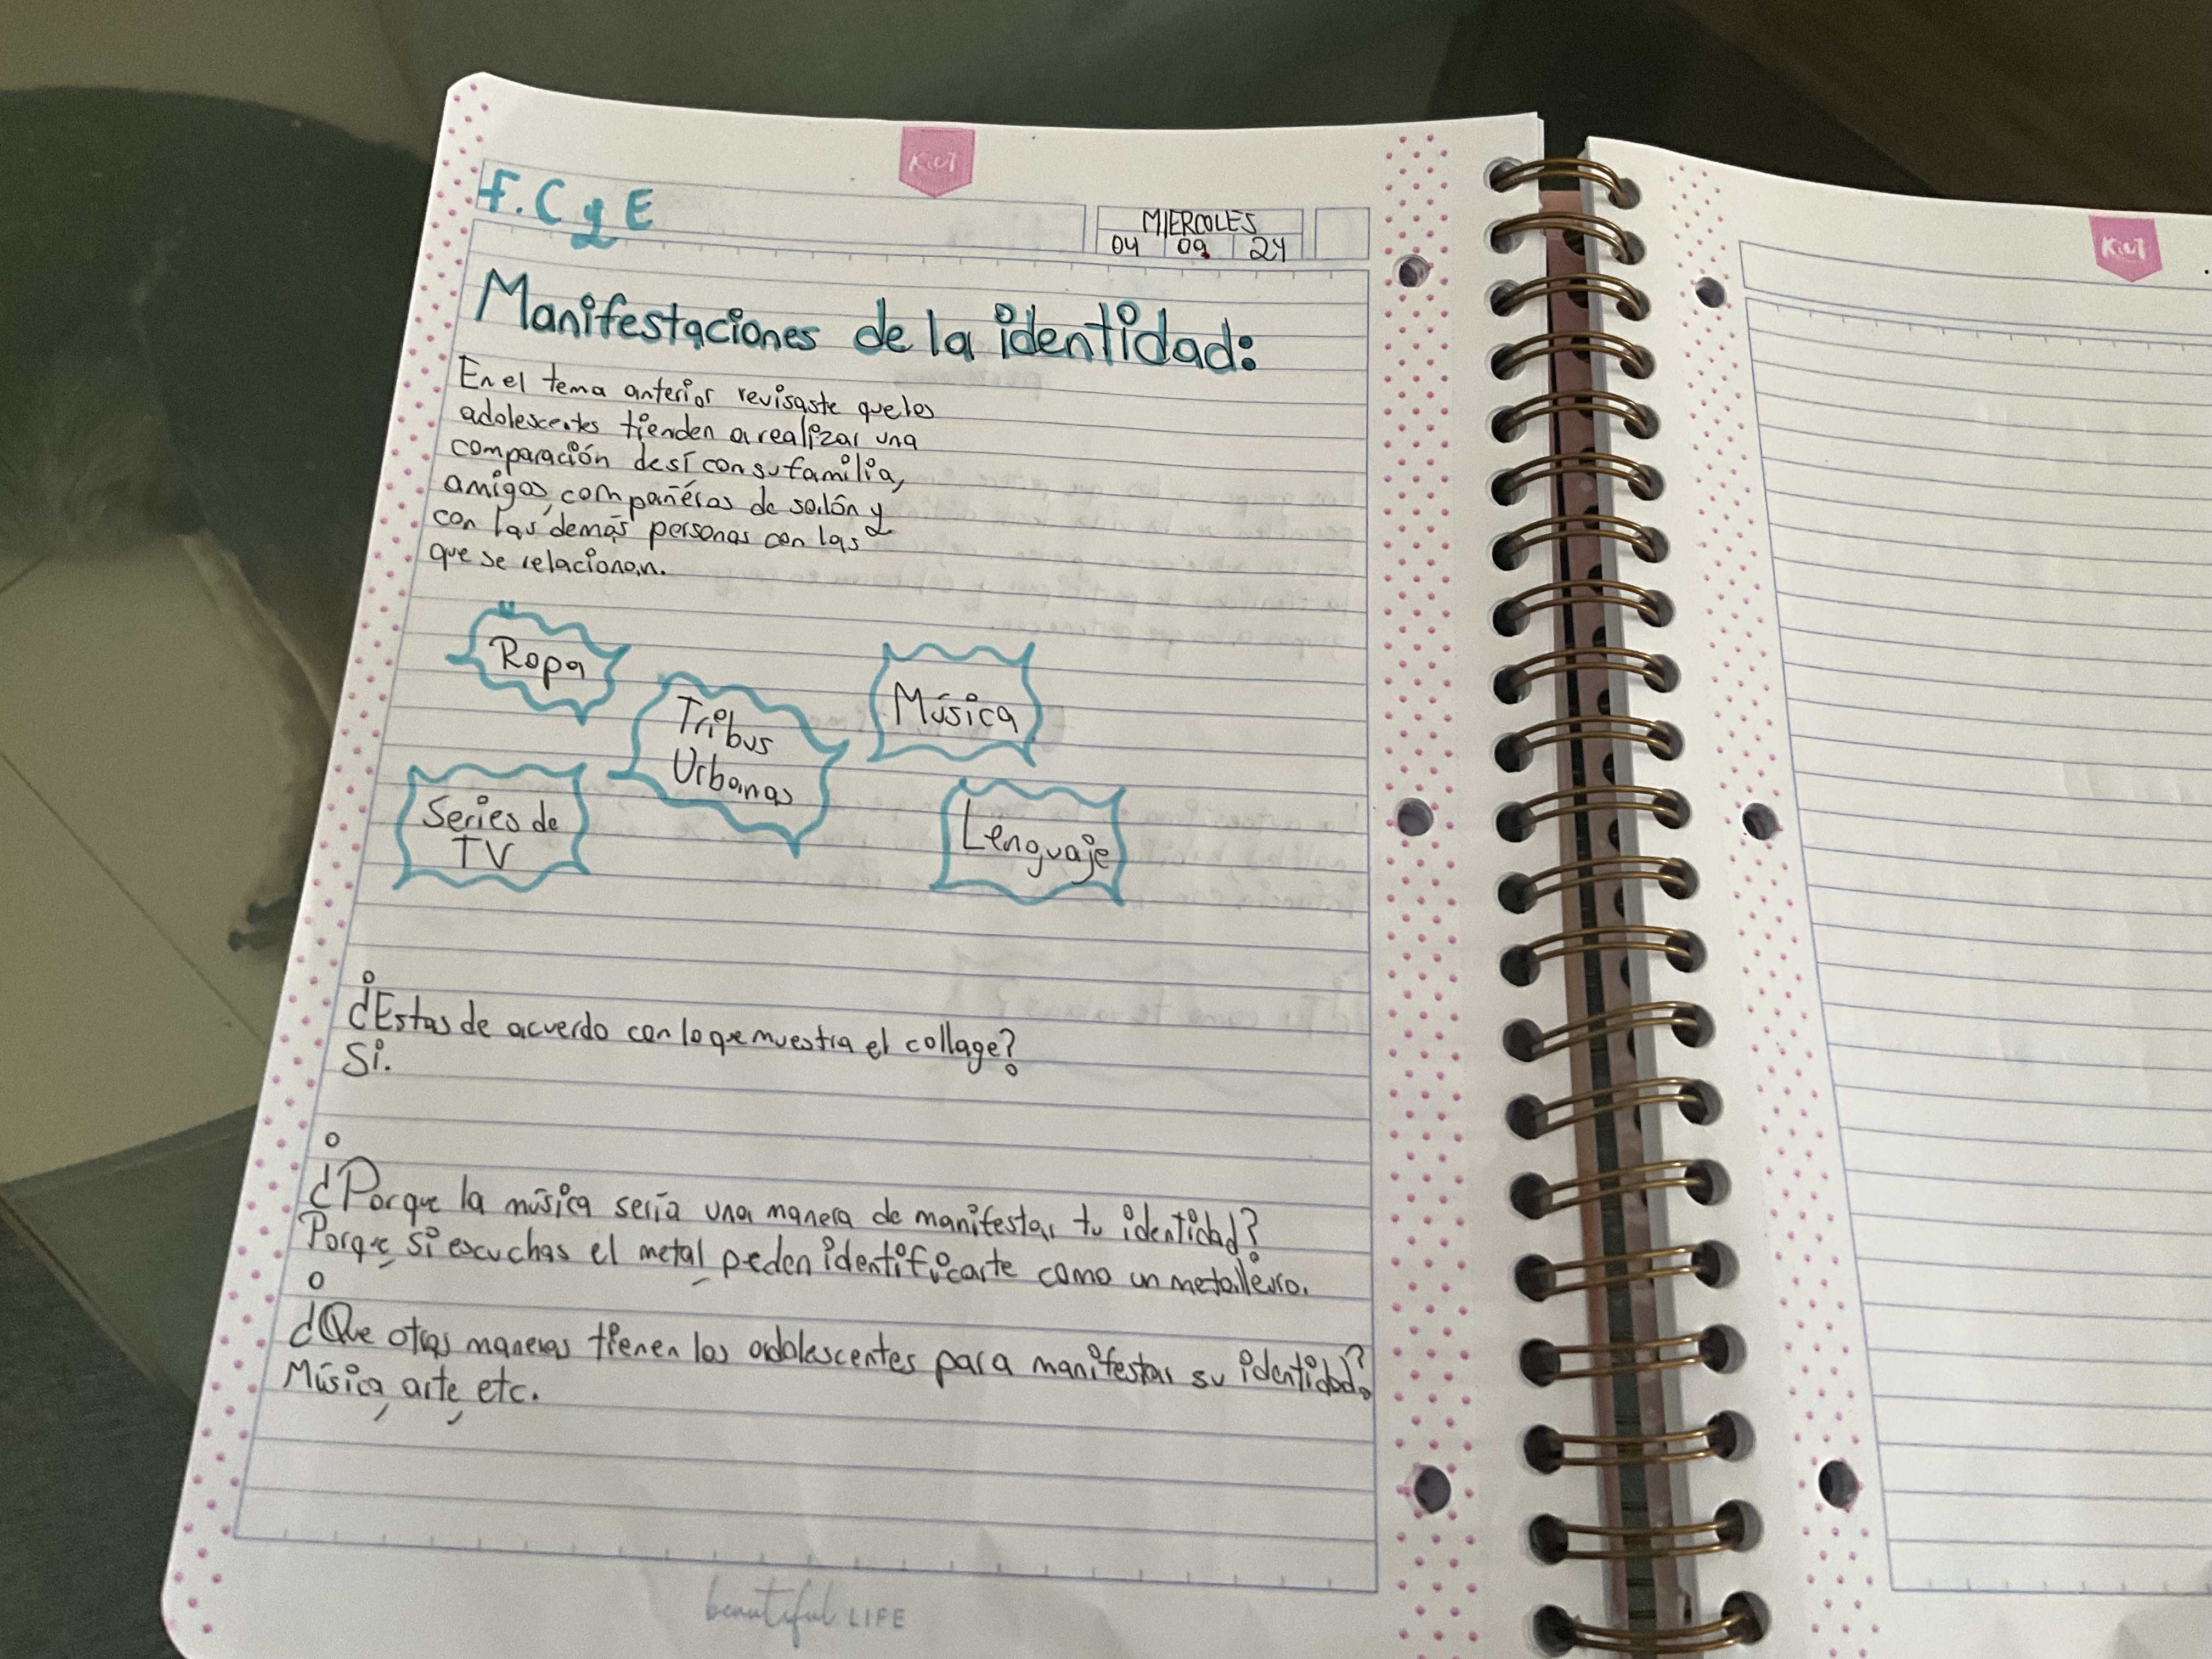 Kiut
F. C y E
MIERCOLES
04 09 24
Kiut
Manifestaciones de la identidad:
En el tema anterior revisaste que los
adolescentes tienden a realizar una
comparación de sí con su familia,
amigos, compañeros de salón y
con las demás personas con las
que se relacionan.
Ropa
Tribus
Urbanas
Música
Series de
TV
Lenguaje
¿Estas de acuerdo con lo que muestra el collage?
Si.
¿Porque la música sería una manera de manifestar tu identidad?
Porque, si escuchas el metal, peden identificarte como un metallero.
¿Que otras maneras tienen los adolescentes para manifestar su identidad?
Música, arte, etc.
beautiful LIFE